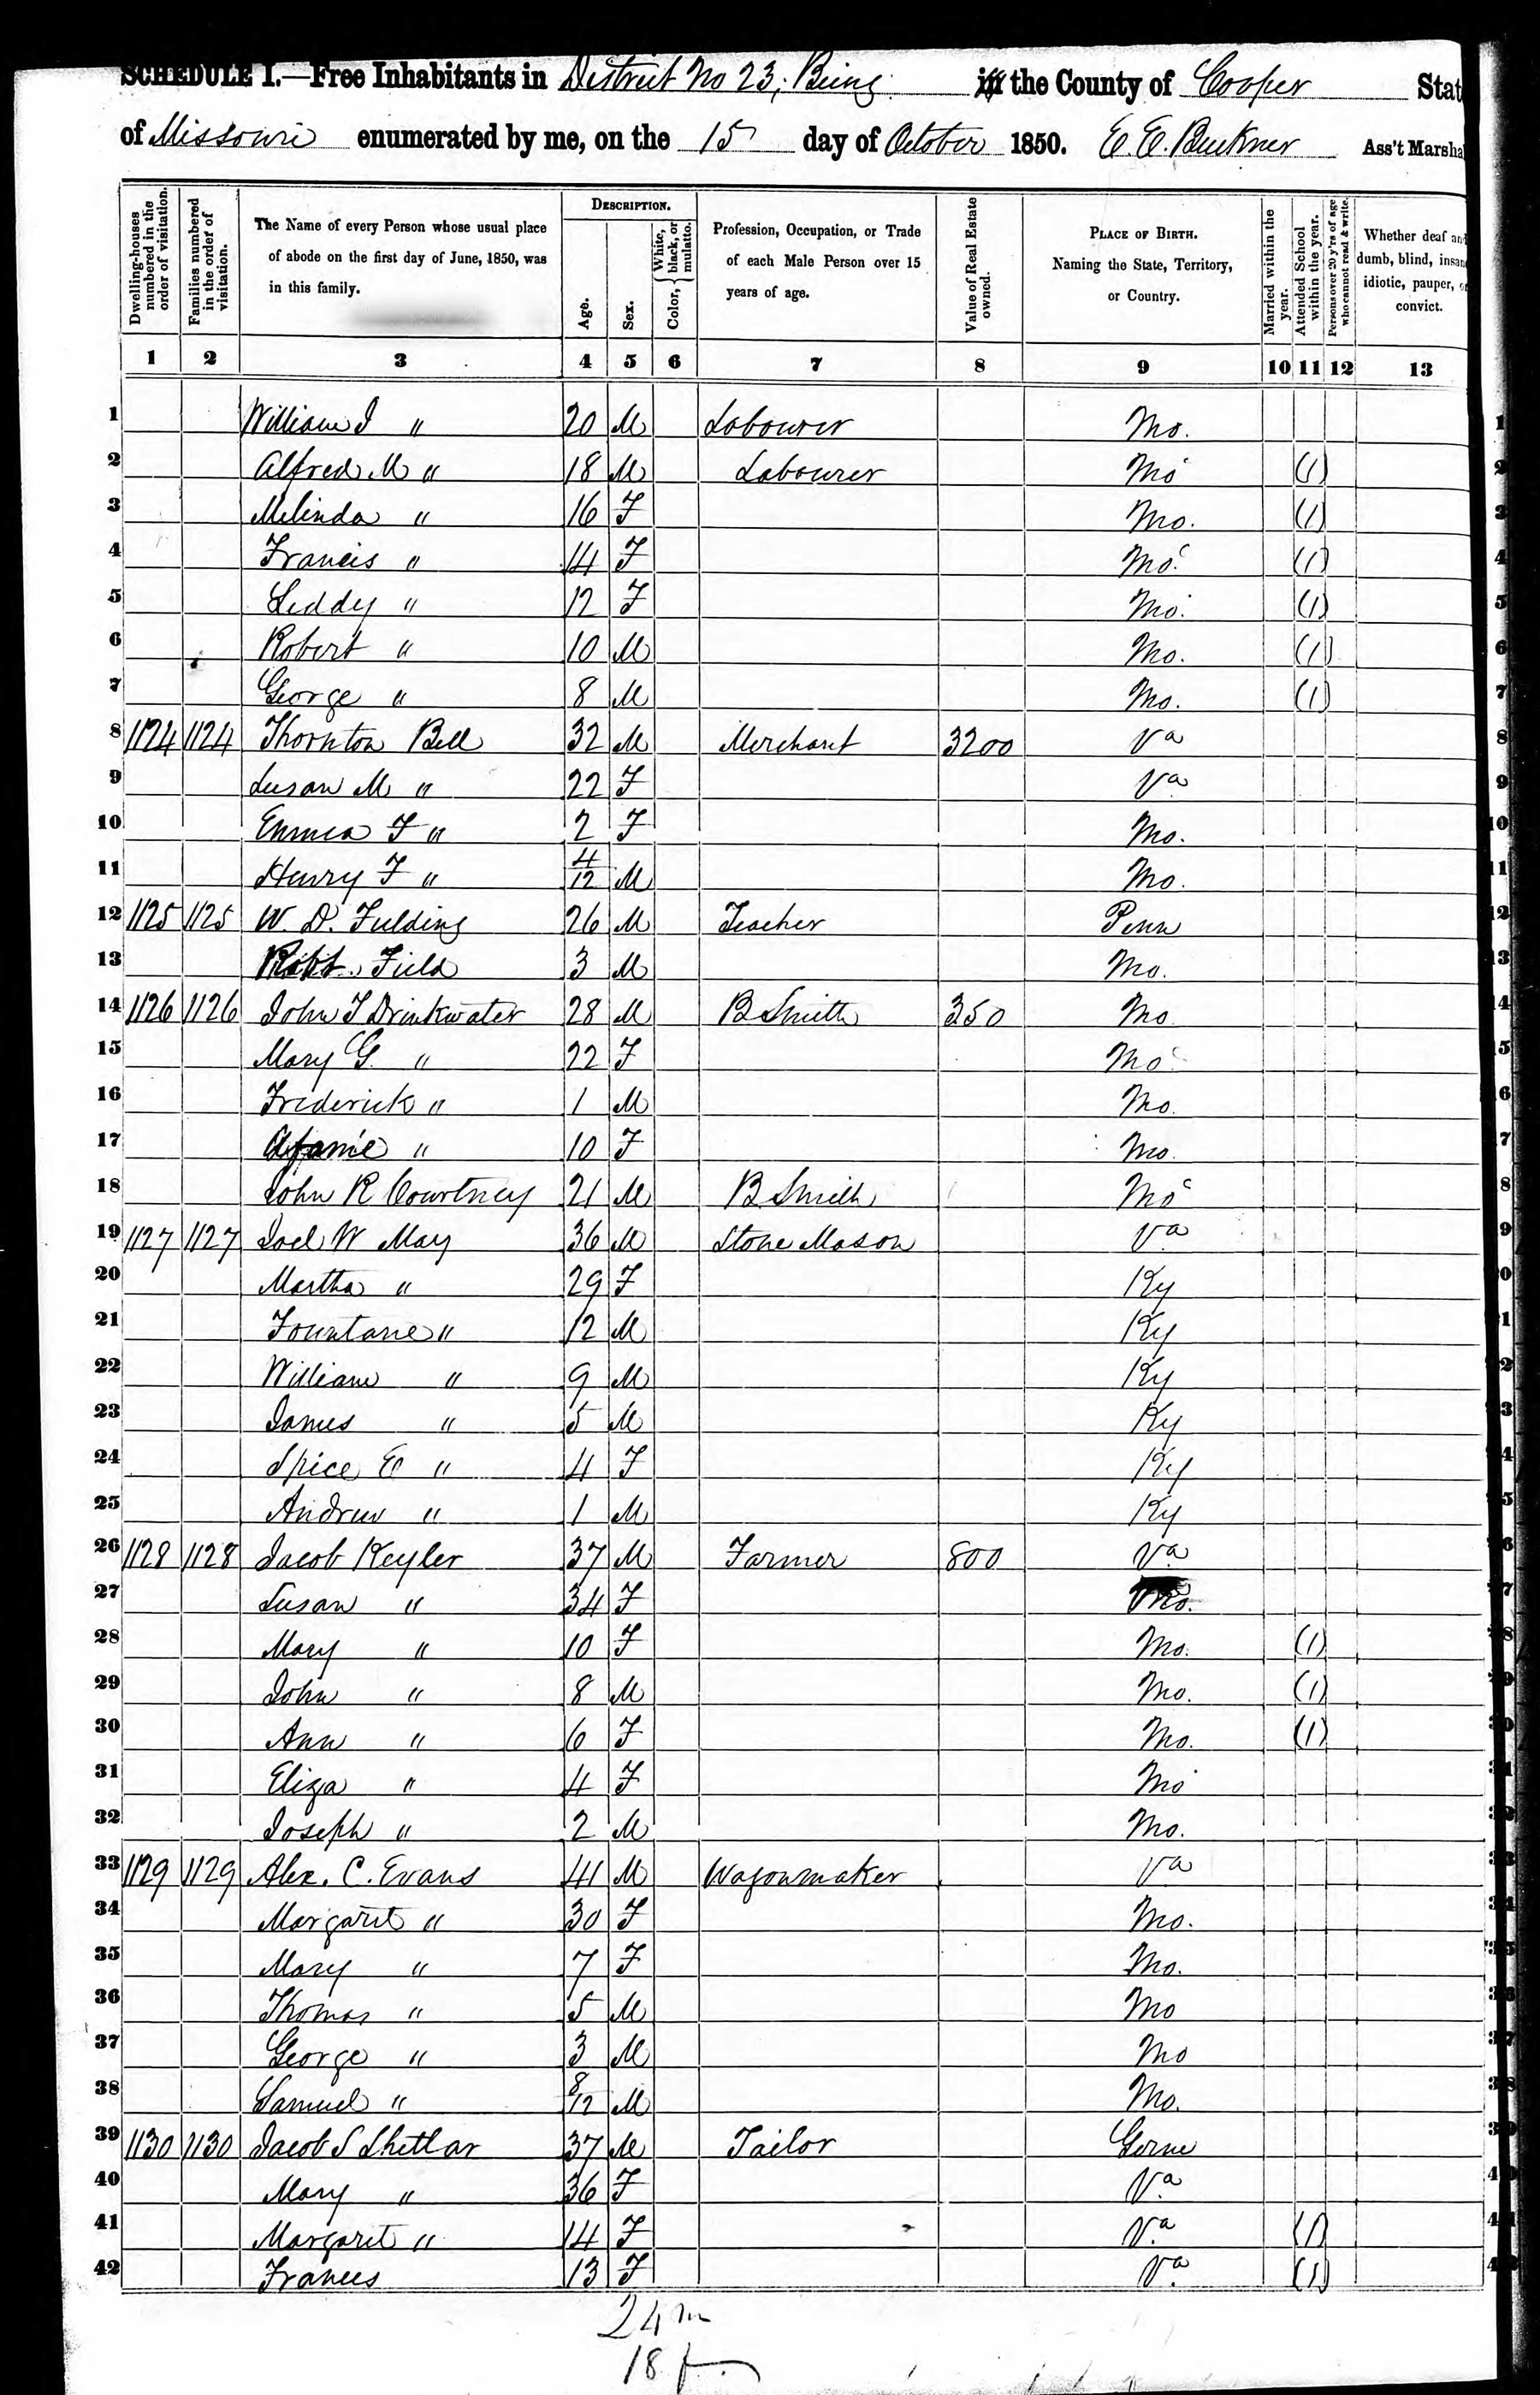 SCHEDULE I.—Free Inhabitants in District No 23, Being in the County of Cooper State
of Missouri enumerated by me, on the 15 day of October 1850. E. E. Buckner Ass't Marshal
Dwelling-houses numbered in the order of visitation.
Families numbered in the order of visitation.
The Name of every Person whose usual place of abode on the first day of June, 1850, was in this family.
DESCRIPTION.
Age.
Sex.
Color, White, black, or mulatto.
Profession, Occupation, or Trade of each Male Person over 15 years of age.
Value of Real Estate owned.
PLACE OF BIRTH. Naming the State, Territory, or Country.
Married within the year.
Attended School within the year.
Persons over 20 y'rs of age who cannot read & write.
Whether deaf and dumb, blind, insane, idiotic, pauper, or convict.
1 2 3 4 5 6 7 8 9 10 11 12 13
1 William J " 20 M Labourer Mo. 1
2 Alfred M " 18 M Labourer Mo (1) 2
3 Melinda " 16 F Mo. (1) 3
4 Francis " 14 F Mo. (1) 4
5 Liddy " 12 F Mo. (1) 5
6 Robert " 10 M Mo. (1) 6
7 George " 8 M Mo. (1) 7
8 1124 1124 Thornton Bell 32 M Merchant 3200 Va 8
9 Susan M " 22 F Va 9
10 Emma F " 2 F Mo. 10
11 Henry F " 4/12 M Mo. 11
12 1125 1125 W. D. Fulding 26 M Teacher Penn 12
13 Robt. Field 3 M Mo. 13
14 1126 1126 John T Drinkwater 28 M B Smith 350 Mo 14
15 Mary G. " 22 F Mo 15
16 Frederick " 1 M Mo. 16
17 " 10 F Mo. 17
18 John R Courtney 21 M B Smith Mo 18
19 1127 1127 Joel W May 36 M Stone Mason Va 19
20 Martha " 29 F Ky 20
21 Fountane " 12 M Ky 21
22 William " 9 M Ky 22
23 James " 5 M Ky 23
24 Spice E " 4 F Ky 24
25 Andrew " 1 M Ky 25
26 1128 1128 Jacob Keyler 37 M Farmer 800 Va 26
27 Susan " 34 F Mo. 27
28 Mary " 10 F Mo. (1) 28
29 John " 8 M Mo. (1) 29
30 Ann " 6 F Mo. (1) 30
31 Eliza " 4 F Mo 31
32 Joseph " 2 M Mo. 32
33 1129 1129 Alex. C. Evans 41 M Wagonmaker Va 33
34 Margaret " 30 F Mo. 34
35 Mary " 7 F Mo. 35
36 Thomas " 5 M Mo 36
37 George " 3 M Mo 37
38 Samuel " 8/12 M Mo. 38
39 1130 1130 Jacob S Shetlar 37 M Tailor Germ 39
40 Mary " 36 F Va 40
41 Margaret " 14 F Va (1) 41
42 Frances 13 F Va. (1) 42
24 m
18 f.